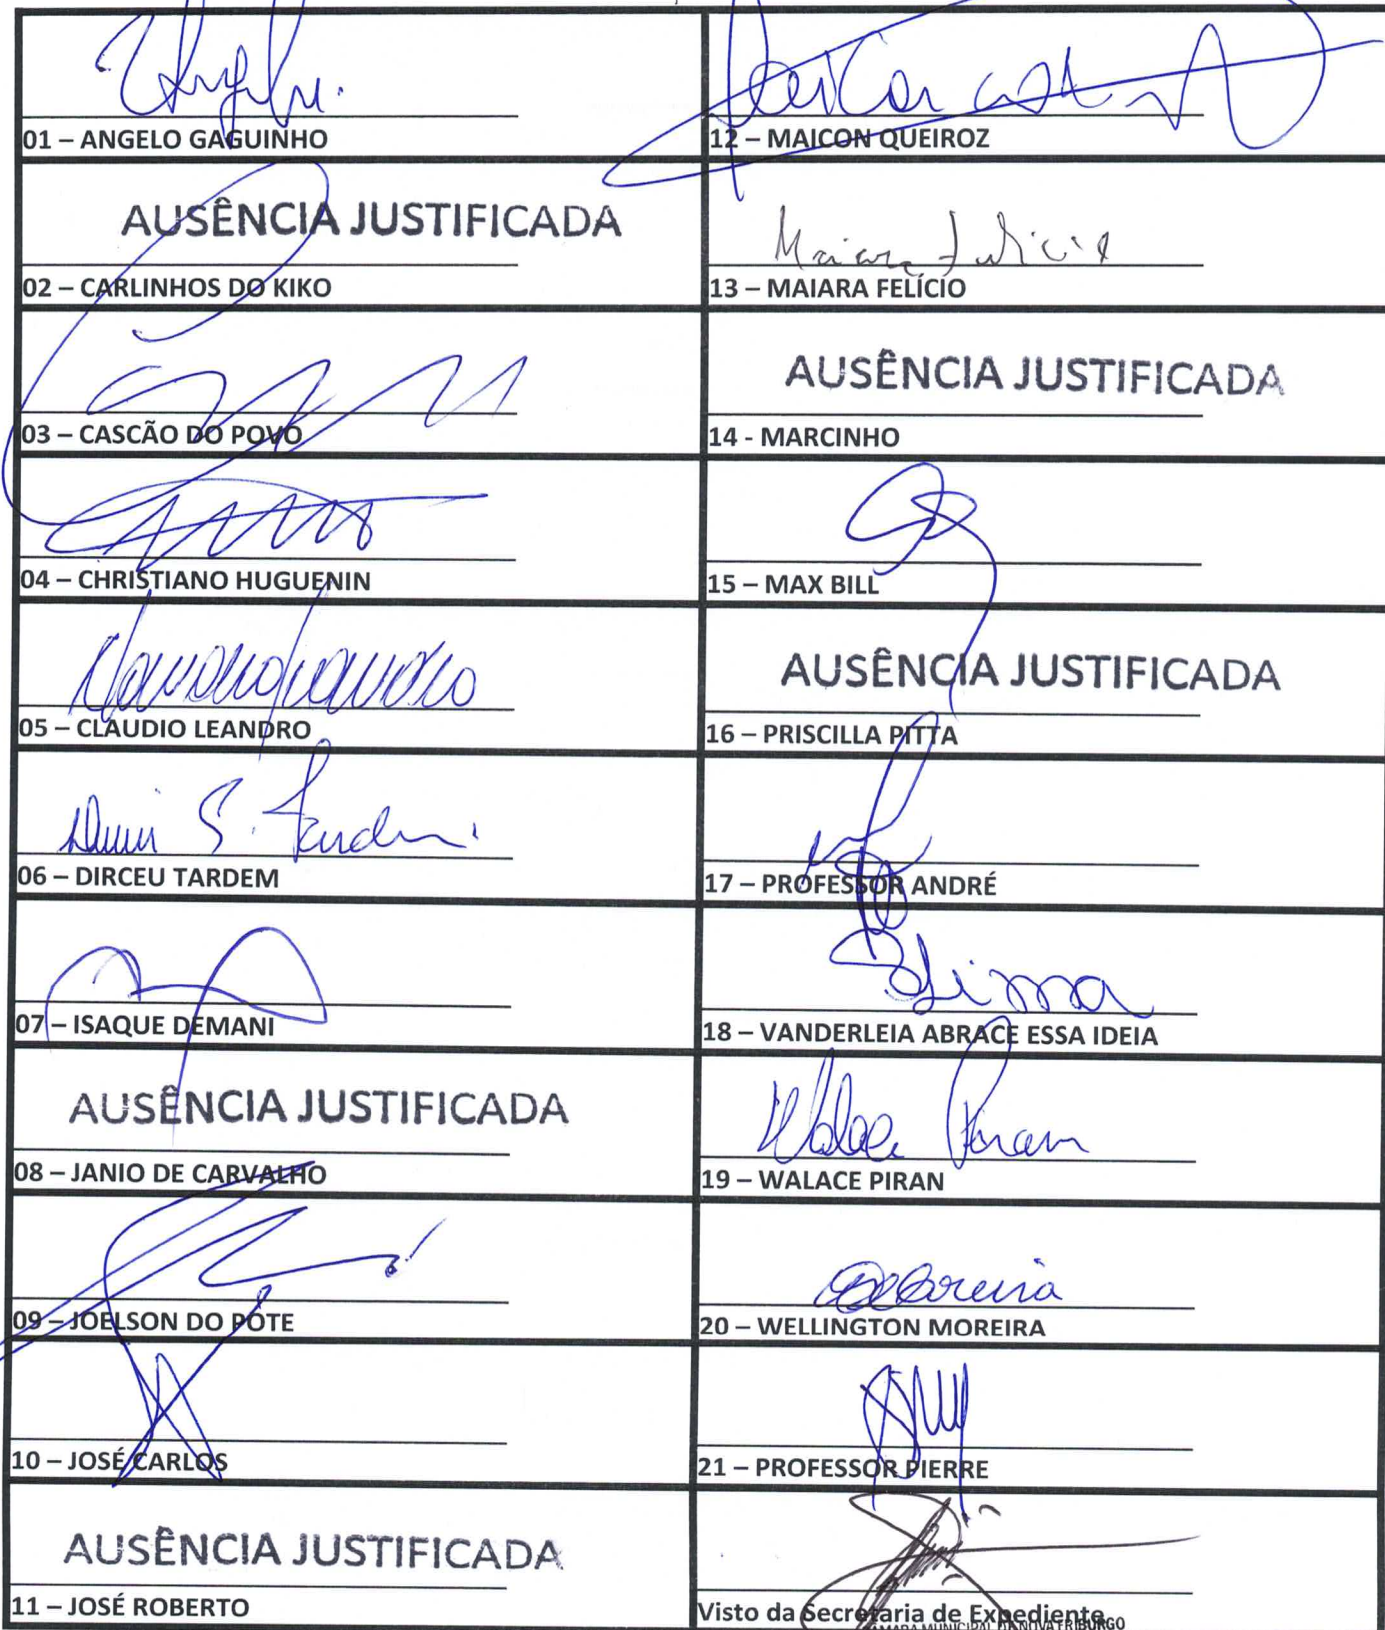 01 – ANGELO GAGUINHO
AUSÊNCIA JUSTIFICADA
02 – CARLINHOS DO KIKO
03 – CASCÃO DO POVO
04 – CHRISTIANO HUGUENIN
05 – CLAUDIO LEANDRO
06 – DIRCEU TARDEM
07 – ISAQUE DEMANI
AUSÊNCIA JUSTIFICADA
08 – JANIO DE CARVALHO
09 – JOELSON DO POTE
10 – JOSÉ CARLOS
AUSÊNCIA JUSTIFICADA
11 – JOSÉ ROBERTO
12 – MAICON QUEIROZ
Maiara Felicio
13 – MAIARA FELÍCIO
AUSÊNCIA JUSTIFICADA
14 - MARCINHO
15 – MAX BILL
AUSÊNCIA JUSTIFICADA
16 – PRISCILLA PITTA
17 – PROFESSOR ANDRÉ
Lima
18 – VANDERLEIA ABRACE ESSA IDEIA
Walace Piran
19 – WALACE PIRAN
20 – WELLINGTON MOREIRA
21 – PROFESSOR PIERRE
Visto da Secretaria de Expediente
CÂMARA MUNICIPAL DE NOVA FRIBURGO